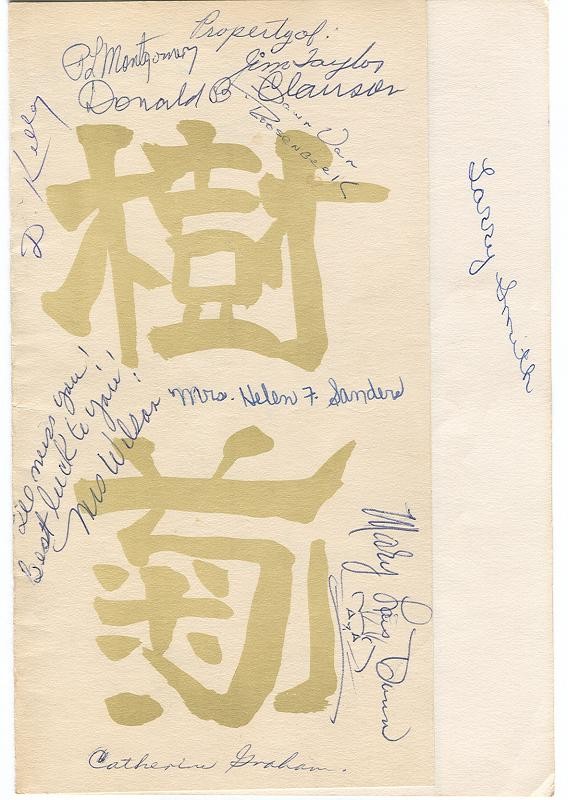 Property of:
Jim Taylor
P L Montgomery
Donald B. Clauson
Dawn Van
Roosenbeek
D. Kelly
Larry Smith
樹
Mrs. Helen F. Sanders
I'll miss you!
Best luck to you!!
Mrs Wilson
菊
Mary Lois Dunn
Catherine Graham.